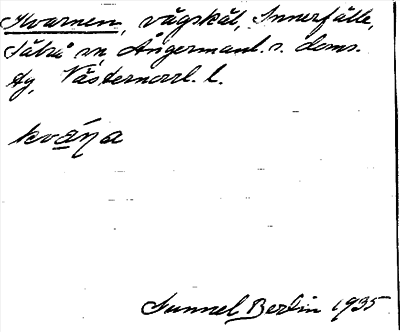 Kvarnen, vägskäl, Innerfälle,
Sätrå sn, Ångermanl. s. doms.
Ag, Västernorrl. l.
kvàṇa
Gunnel Berlin 1935